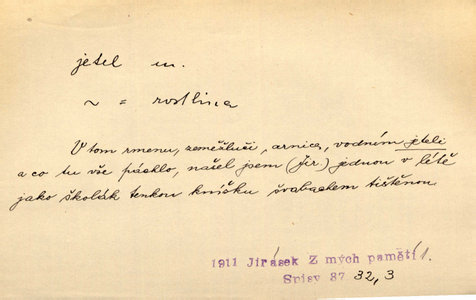 jetel m.
~ = rostlina
V tom rmenu, zeměžluči, arnice, vodním jeteli
a co tu vše páchlo, našel jsem (Jir) jednou v létě
jako školák tenkou knížku švabachem tištěnou.
1911 Jirásek Z mých pamětí 1.
Spisy 37 32,3